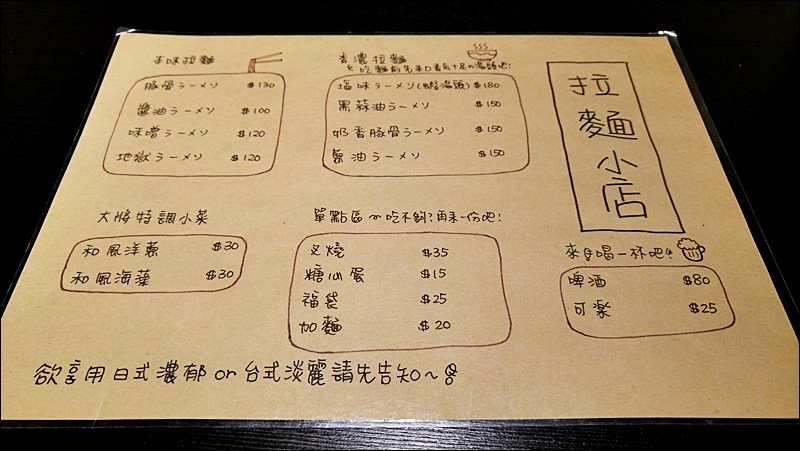 本味拉麵
豚骨ラーメン $130
醬油ラーメン $100
味噌ラーメン $120
地獄ラーメン $120
香濃拉麵
吃麵前先來口香氣十足的湯頭吧!
塩味ラーメン(湯頭) $180
黑蒜油ラーメン $150
奶香豚骨ラーメン $150
蔥油ラーメン $150
拉麵小店
大將特調小菜
和風洋蔥 $30
和風海藻 $30
單點區~吃不夠?再來一份吧!
叉燒 $35
糖心蛋 $15
福袋 $25
加麵 $20
來自喝一杯吧!
啤酒 $80
可樂 $25
欲享用日式濃郁or台式淡麗請先告知~